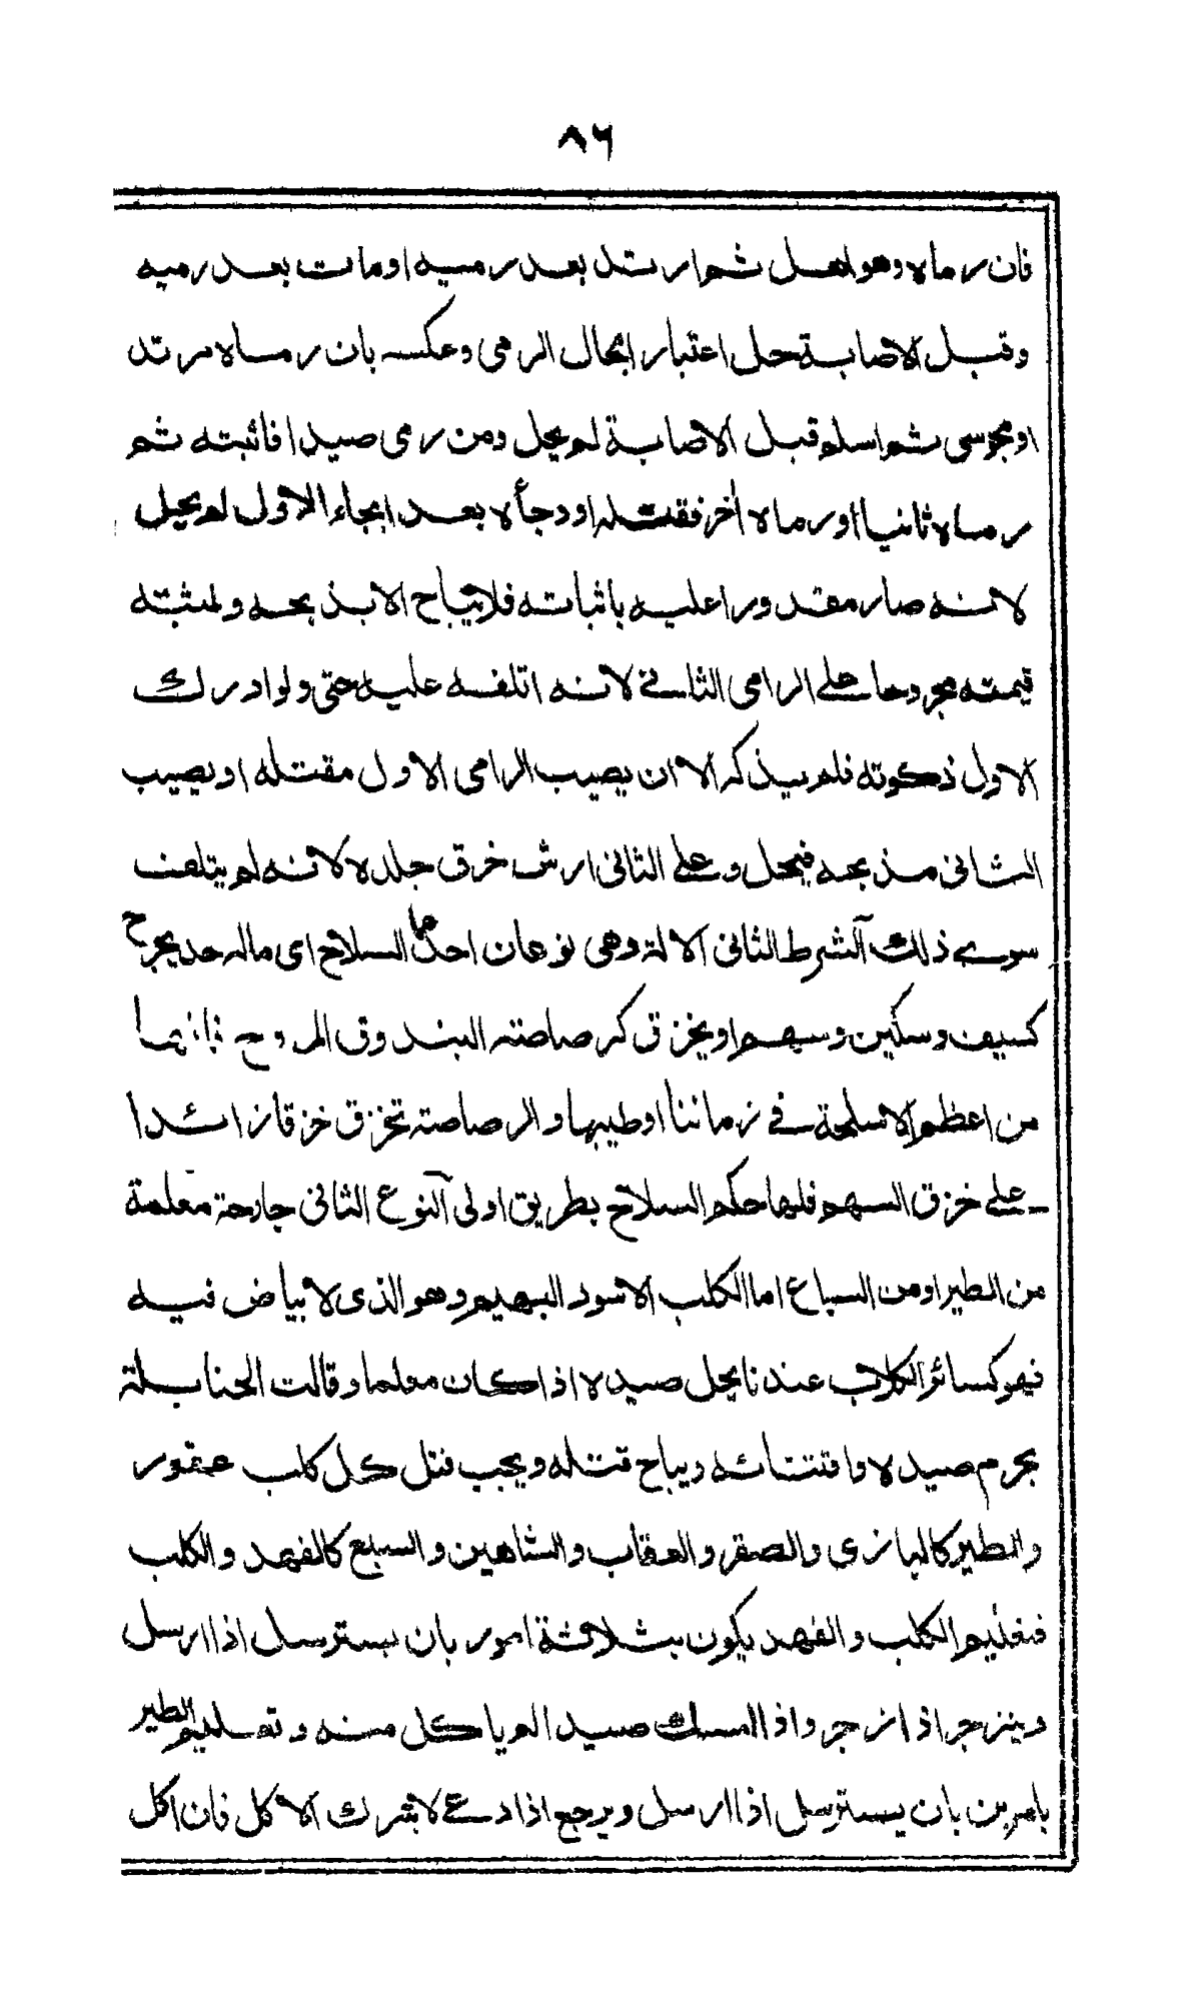 ٨٦
فان رماه وهو اهل ثم ارتد بعد رميه او مات بعد رميه
وقبل الاصابة حل اعتبار ابحال الرمى وعكسه بان رماه مرتد
او مجوسى ثم اسلم قبل الاصابة لم يحل ومن رمى صيدا فاثبته ثم
رماه ثانيا او رماه آخر فقتله او دجأه بعد ايجاء الاول لم يحل
لانه صار مقدورا عليه باثباته فلا يباح الا بذبحه ولمثبته
قيمته مجروحا على الرامى الثانى لانه اتلفه عليه حتى ولو ادرك
الاول ذكوته فلم يذكه الا ان يصيب الرامى الاول مقتله او يصيب
الثانى مذبحه فيحل وعلى الثانى ارش خرق جلده لانه لم يتلف
سوى ذلك الشرط الثانى الالة وهى نوعان احدهما السلاح اى ماله حد يجرح
كسيف وسكين وسهم او يخزق كرصاصته البندوق المروح فانهما
من اعظم الاسلحة فى زماننا او طيبها والرصاصته تخزق خزقا زائدا
على خزق السهم فلها حكم السلاح بطريق اولى النوع الثانى جارحة معلمة
من الطير او من السباع اما الكلب الاسود البهيم وهو الذى لا بياض فيه
فهو كسائر الكلاب عندنا يحل صيده اذا كان معلما وقالت الحنابلة
يحرم صيده واقتنائه ويباح قتله ويجب قتل كل كلب عقور
والطير كالبازى والصقر والعقاب والشاهين والسبع كالفهد والكلب
فتعليم الكلب والفهد يكون بثلاثة امور بان يسترسل اذا ارسل
وينزجر اذا زجر واذا امسك صيدا لم ياكل منه وتعليم الطير
بامرين بان يسترسل اذا ارسل ويرجع اذا دعى لا بترك الاكل فان اكل